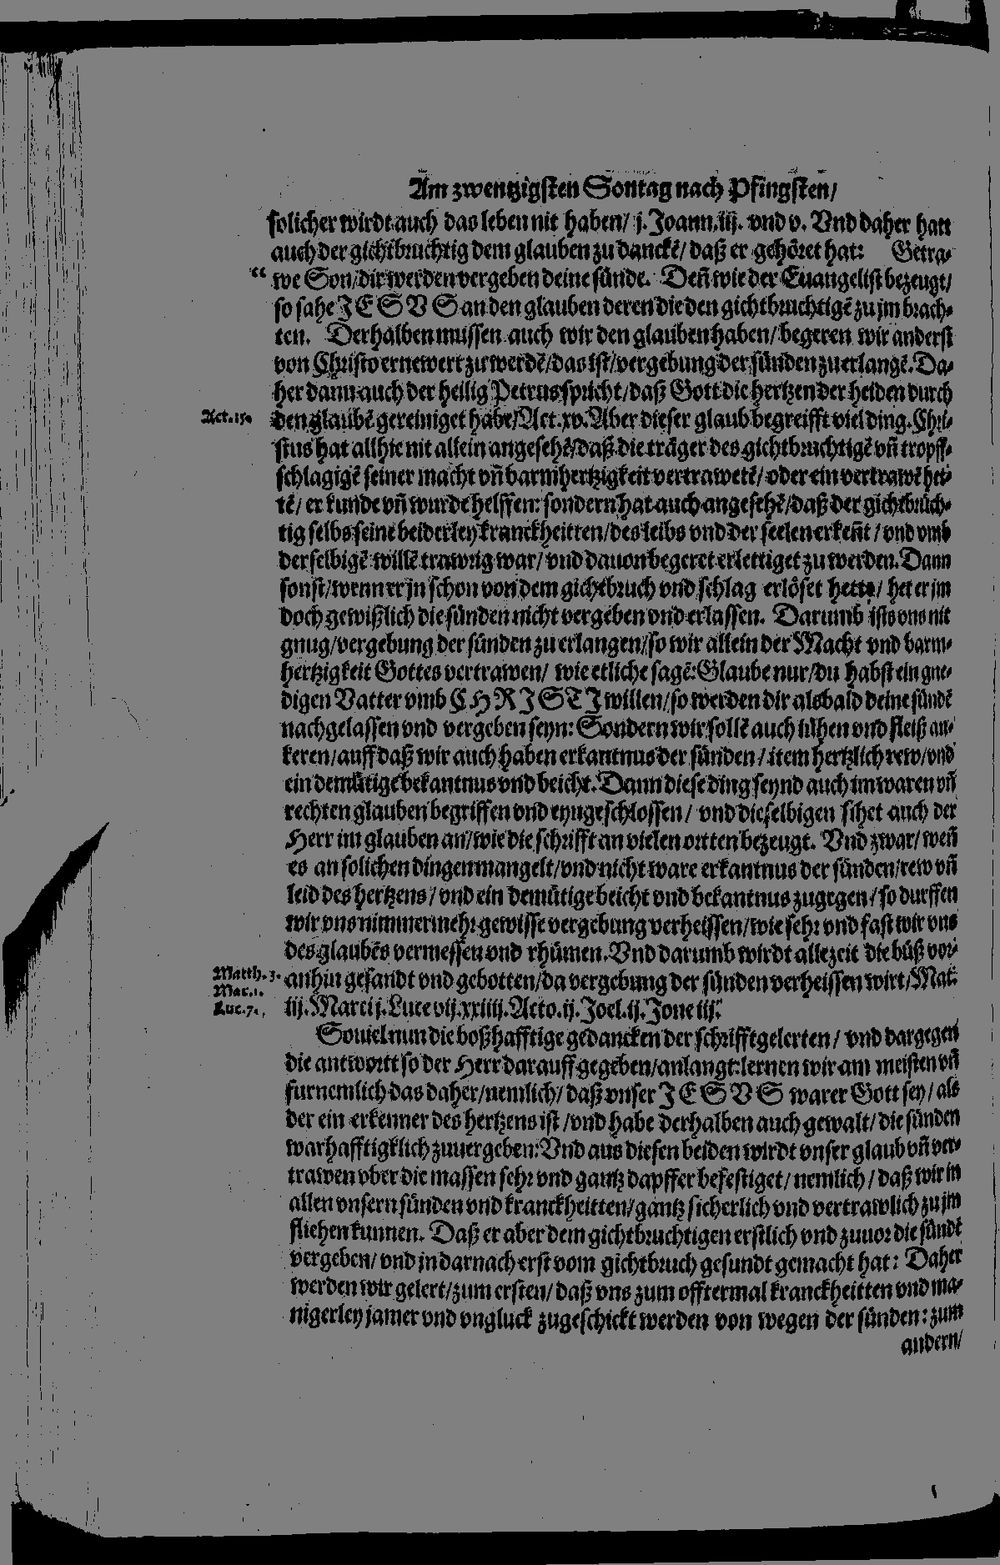 Am zwentzigsten Sontag nach Pfingsten/
solicher wirdt auch das leben nit haben/ j. Joann. iij. vnd v. Vnd daher hatt
auch der gichtbruchtig dem glauben zu danckẽ/ daß er gehöret hat: Getra-
“ we Son/ dir werden vergeben deine sünde. Deñ wie der Euangelist bezeugt/
so sahe JESVS an den glauben deren die den gichtbruchtigẽ zu jm brach-
ten. Derhalben mussen auch wir den glauben haben/ begeren wir anderst
von Christo ernewert zu werdẽ/ das ist/ vergebung der sünden zuerlangẽ. Da-
her dann auch der heilig Petrus spricht/ daß Gott die hertzen der heiden durch
Act. 15.
den glaubẽ gereiniget habe/ Act. xv. Aber dieser glaub begreifft viel ding. Chri-
stus hat allhie nit allein angesehẽ/ daß die träger des gichtbruchtigẽ vñ tropff-
schlagigẽ seiner macht vñ barmhertzigkeit vertrawetẽ/ oder ein vertrawẽ het-
tẽ/ er kunde vñ wurde helffen: sondern hat auch angesehẽ/ daß der gichtbrüch-
tig selbs seine beiderley kranckheitten/ des leibs vnd der seelen erkeñt/ vnd vmb
derselbigẽ willẽ trawrig war/ vnd dauon begeret erlettiget zu werden. Dann
sonst/ wenn er jn schon von dem gichtbruch vnd schlag erlöset hette/ het er jm
doch gewißlich die sünden nicht vergeben vnd erlassen. Darumb ists vns nit
gnug/ vergebung der sünden zu erlangen/ so wir allein der Macht vnd barm-
hertzigkeit Gottes vertrawen/ wie etliche sagẽ: Glaube nur/ du habst ein gne-
digen Vatter vmb CHRISTI willen/ so werden dir alsbald deine sündẽ
nachgelassen vnd vergeben seyn: Sondern wir sollẽ auch mühen vnd fleiß an-
keren/ auff daß wir auch haben erkantnus der sünden/ item hertzlich rew/ vnd
ein demütige bekantnus vnd beicht. Dann diese ding seynd auch im waren vñ
rechten glauben begriffen vnd eyngeschlossen/ vnd dieselbigen sihet auch der
Herr im glauben an/ wie die schrifft an vielen ortten bezeugt. Vnd zwar/ weñ
es an solichen dingen mangelt/ vnd nicht ware erkantnus der sünden/ rew vñ
leid des hertzens/ vnd ein demütige beicht vnd bekantnus zugegen/ so durffen
wir vns nimmermehr gewisse vergebung verheissen/ wie sehr vnd fast wir vns
des glaubẽs vermessen vnd rhümen. Vnd darumb wirdt allezeit die büß vor
Matth. 3.
Mar. 1.
Luc. 7.
anhin gesandt vnd gebotten/ da vergebung der sünden verheissen wirt/ Mat.
iij. Marci j. Luce vij. xxiiij. Acto. ij. Joel. ij. Jone iij.
Souiel nun die boßhafftige gedancken der schrifftgelerten/ vnd dargegen
die antwortt so der Herr darauff gegeben/ anlangt: lernen wir am meisten vñ
furnemlich das daher/ nemlich/ daß vnser JESVS warer Gott sey/ als
der ein erkenner des hertzens ist/ vnd habe derhalben auch gewalt/ die sünden
warhafftigklich zuuergeben: Vnd aus diesen beiden wirdt vnser glaub vñ ver-
trawen vber die massen sehr vnd gantz dapffer befestiget/ nemlich/ daß wir in
allen vnsern sünden vnd kranckheitten/ gantz sicherlich vnd vertrawlich zu jm
fliehen kunnen. Daß er aber dem gichtbruchtigen erstlich vnd zuuor die sündẽ
vergeben/ vnd jn darnach erst vom gichtbruch gesundt gemacht hat: Daher
werden wir gelert/ zum ersten/ daß vns zum offtermal kranckheitten vnd ma-
nigerley jamer vnd vngluck zugeschickt werden von wegen der sünden: zum
andern/